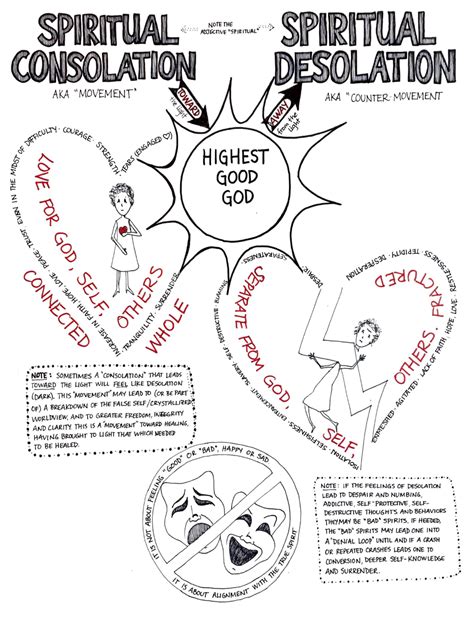 SPIRITUAL
CONSOLATION
AKA "MOVEMENT"
NOTE THE
ADJECTIVE "SPIRITUAL"
SPIRITUAL
DESOLATION
AKA "COUNTER MOVEMENT
TOWARD
the light
AWAY
from the light
HIGHEST
GOOD
GOD
TRUST EVEN IN THE MIDST OF DIFFICULTY · COURAGE · STRENGTH
TEARS (ENGAGED ♡)
INCREASE IN FAITH HOPE LOVE · PEACE
TRANQUILITY · SURRENDER
LOVE FOR GOD, SELF,
OTHERS
CONNECTED
WHOLE
DESPAIR · SEPARATENESS
SELFISHNESS · OUTRAGEMENT · SLAVERY · SELF DESTRUCTIVE
ISOLATION
DESPERATION · TEPIDITY · RESTLESSNESS
EXTINGUISHED · AGITATED · LACK OF FAITH HOPE LOVE
SEPARATE FROM GOD
SELF,
OTHERS, FRACTURED
NOTE: SOMETIMES A "CONSOLATION" THAT LEADS
TOWARD THE LIGHT WILL FEEL LIKE DESOLATION
(DARK). THIS "MOVEMENT" MAY LEAD TO (OR BE PART
OF) A BREAKDOWN OF THE FALSE SELF/CRYSTALLIZED
WORLDVIEW, AND TO GREATER FREEDOM, INTEGRITY
AND CLARITY THIS IS A "MOVEMENT" TOWARD HEALING,
HAVING BROUGHT TO LIGHT THAT WHICH NEEDED
TO BE HEALED.
IT IS NOT ABOUT FEELING "GOOD" OR "BAD", HAPPY OR SAD
IT IS ABOUT ALIGNMENT WITH THE TRUE SPIRIT
NOTE: IF THE FEELINGS OF DESOLATION
LEAD TO DESPAIR AND NUMBING,
ADDICTIVE, SELF-PROTECTIVE, SELF-
DESTRUCTIVE THOUGHTS AND BEHAVIORS
THEY MAY BE "BAD" SPIRITS, IF HEEDED,
THE "BAD" SPIRITS MAY LEAD ONE INTO
A "DENIAL LOOP" UNTIL AND IF A CRASH
OR REPEATED CRASHES LEADS ONE TO
CONVERSION, DEEPER SELF-KNOWLEDGE
AND SURRENDER.